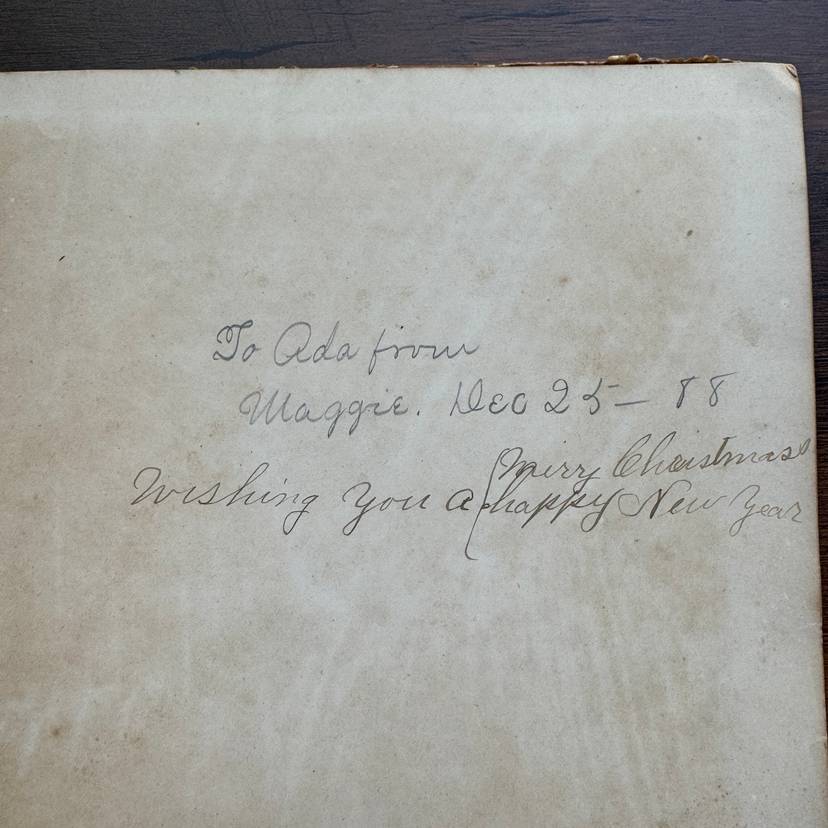 To Ada from
Maggie. Dec 25 - 88
Merry Christmas
Wishing you a happy New Year